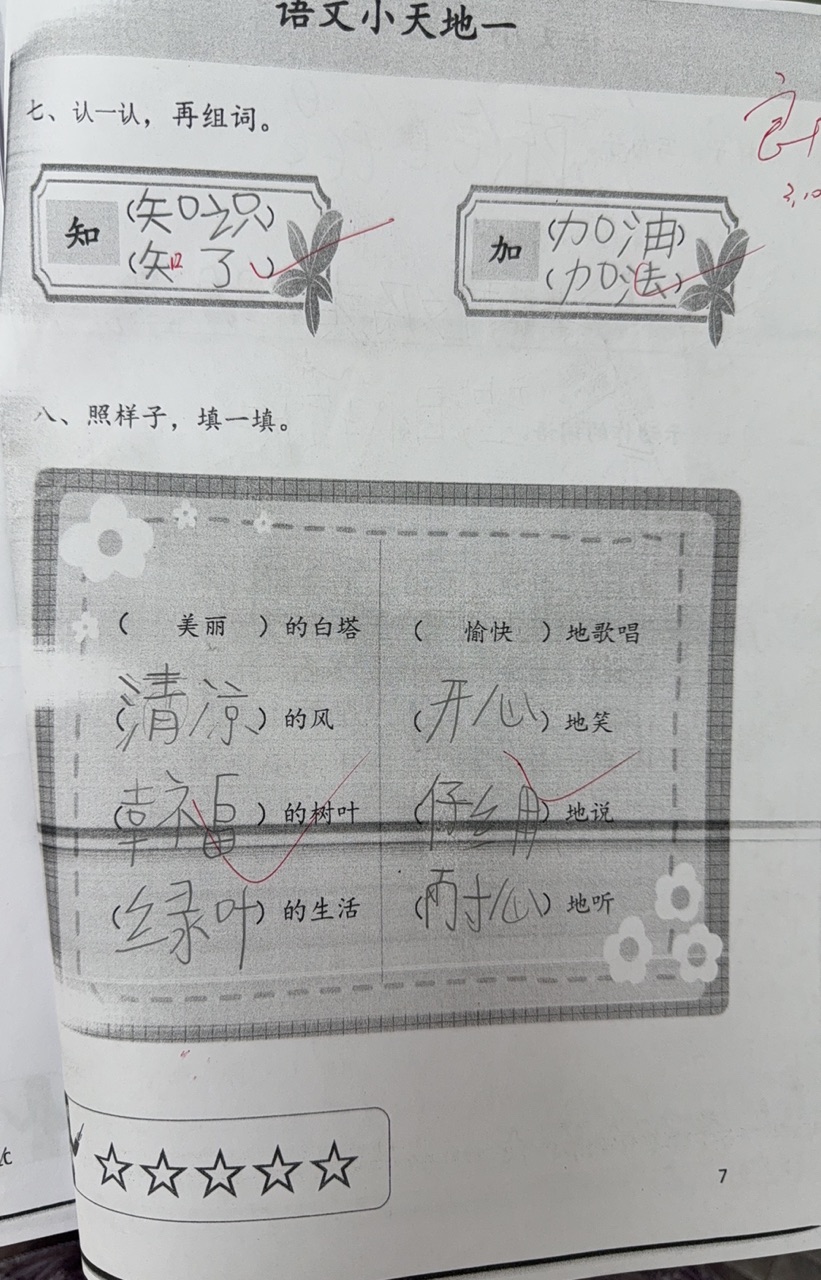 语文小天地一
七、认一认，再组词。
知
(知识)
(知了)
加
(加油)
(加法)
3.10
八、照样子，填一填。
( 美丽 )的白塔 ( 愉快 )地歌唱
(清凉)的风 (开心)地笑
(幸福)的树叶 (仔细)地说
(绿叶)的生活 (耐心)地听
7